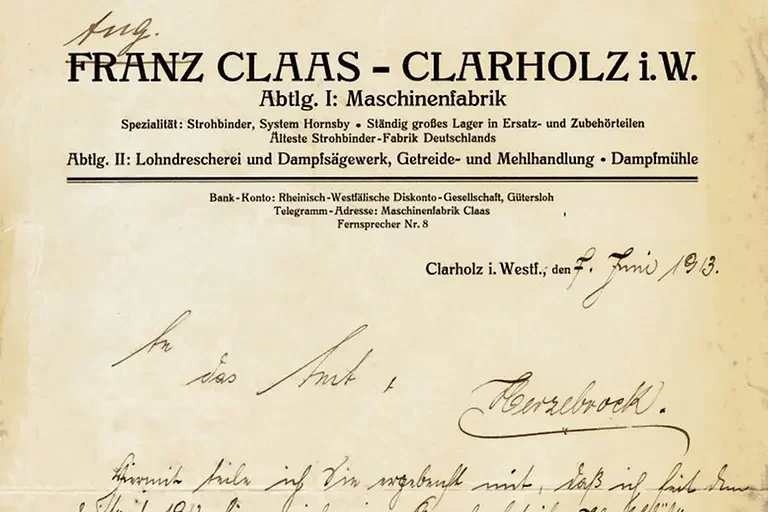 Aug.
FRANZ CLAAS – CLARHOLZ i.W.
Abtlg. I: Maschinenfabrik
Spezialität: Strohbinder, System Hornsby • Ständig großes Lager in Ersatz- und Zubehörteilen
Älteste Strohbinder-Fabrik Deutschlands
Abtlg. II: Lohndrescherei und Dampfsägewerk, Getreide- und Mehlhandlung • Dampfmühle
Bank-Konto: Rheinisch-Westfälische Diskonto-Gesellschaft, Gütersloh
Telegramm-Adresse: Maschinenfabrik Claas
Fernsprecher Nr. 8
Clarholz i. Westf., den 7. Juni 1913.
An
das Amt,
Herzebrock.
Hiermit teile ich Sie ergebenst mit, daß ich seit dem